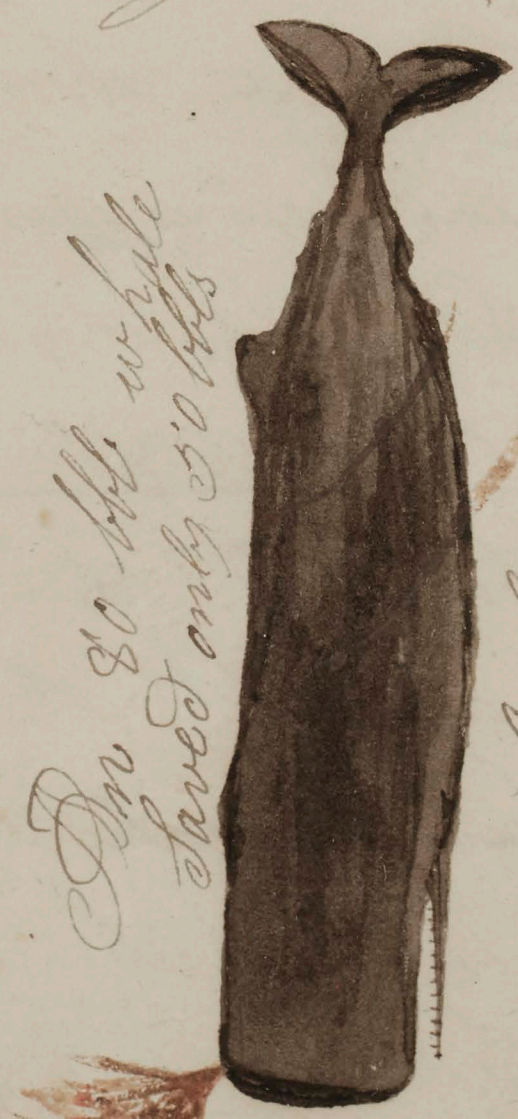 An 80 bbl whale
Saved only 50 bbls